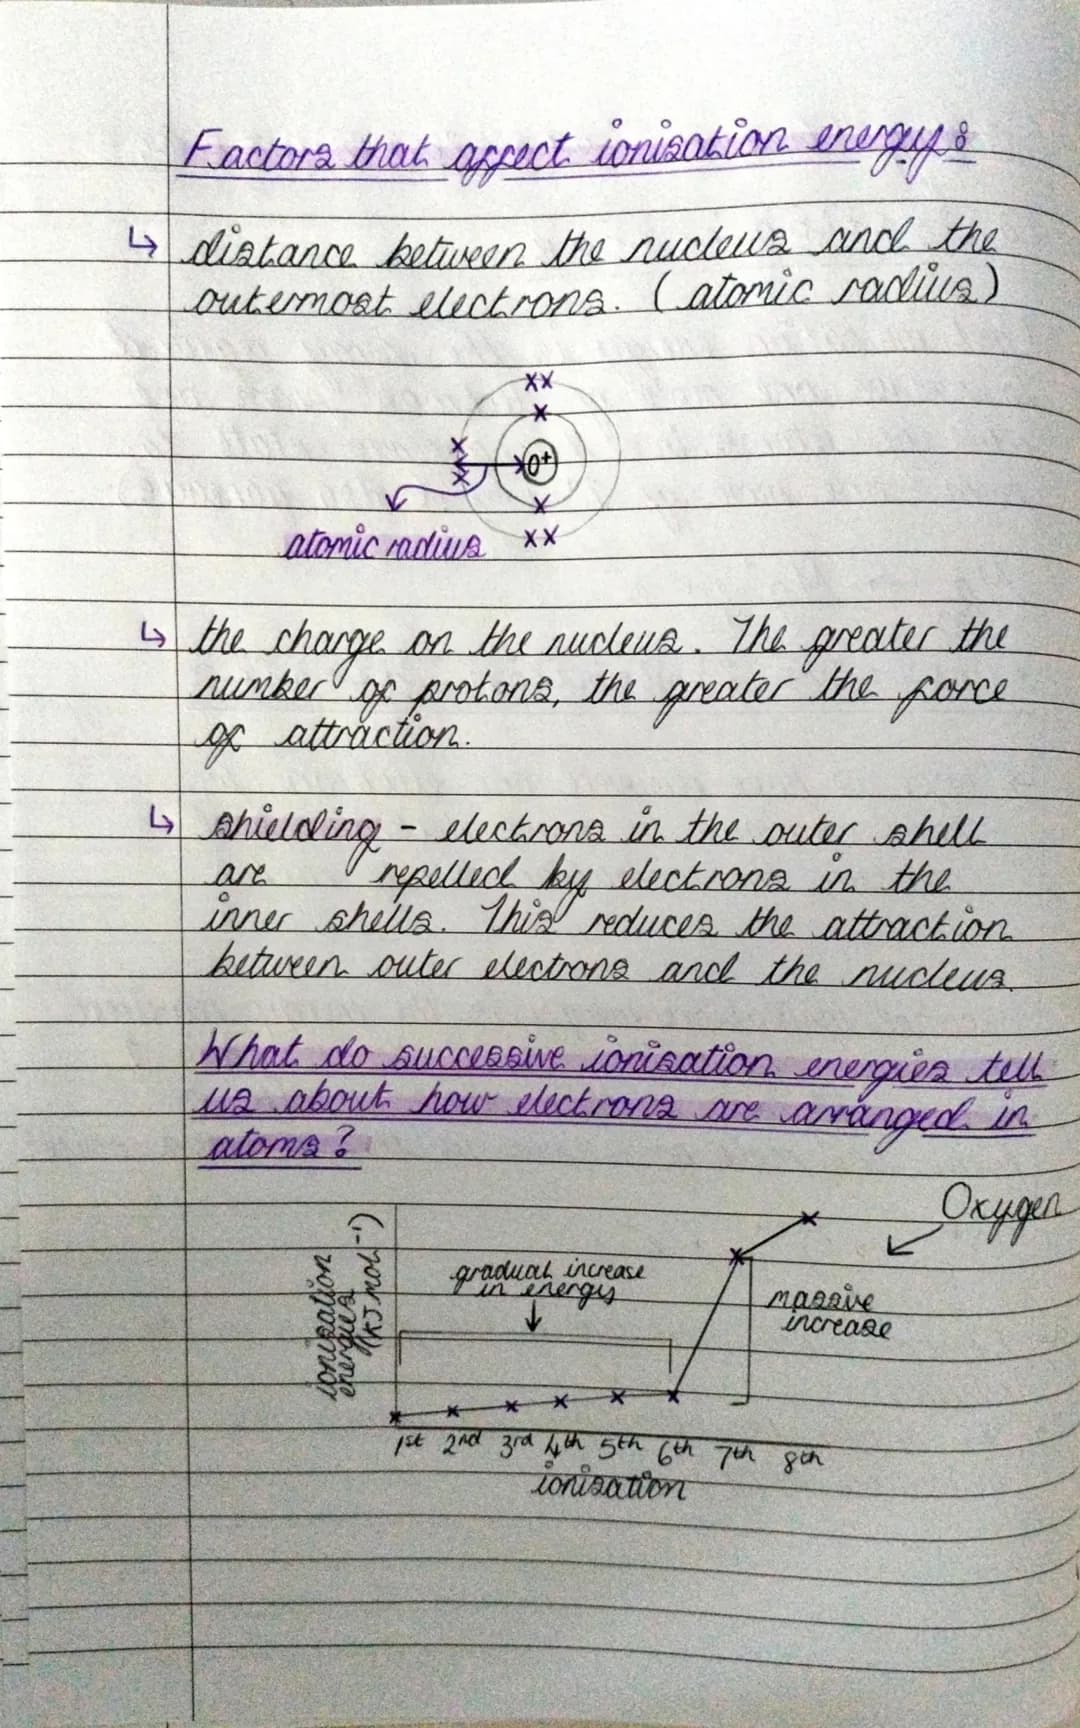 Factors that affect ionisation energy:
↳ distance between the nucleus and the
outermost electrons. (atomic radius)
O⁺
atomic radius
↳ the charge on the nucleus. The greater the
number of protons, the greater the force
of attraction.
↳ shielding - electrons in the outer shell
are repelled by electrons in the
inner shells. This reduces the attraction
between outer electrons and the nucleus.
What do successive ionisation energies tell
us about how electrons are arranged in
atoms?
Oxygen
ionisation
energies
(KJ mol⁻¹)
gradual increase
in energy
massive
increase
1st 2nd 3rd 4th 5th 6th 7th 8th
ionisation